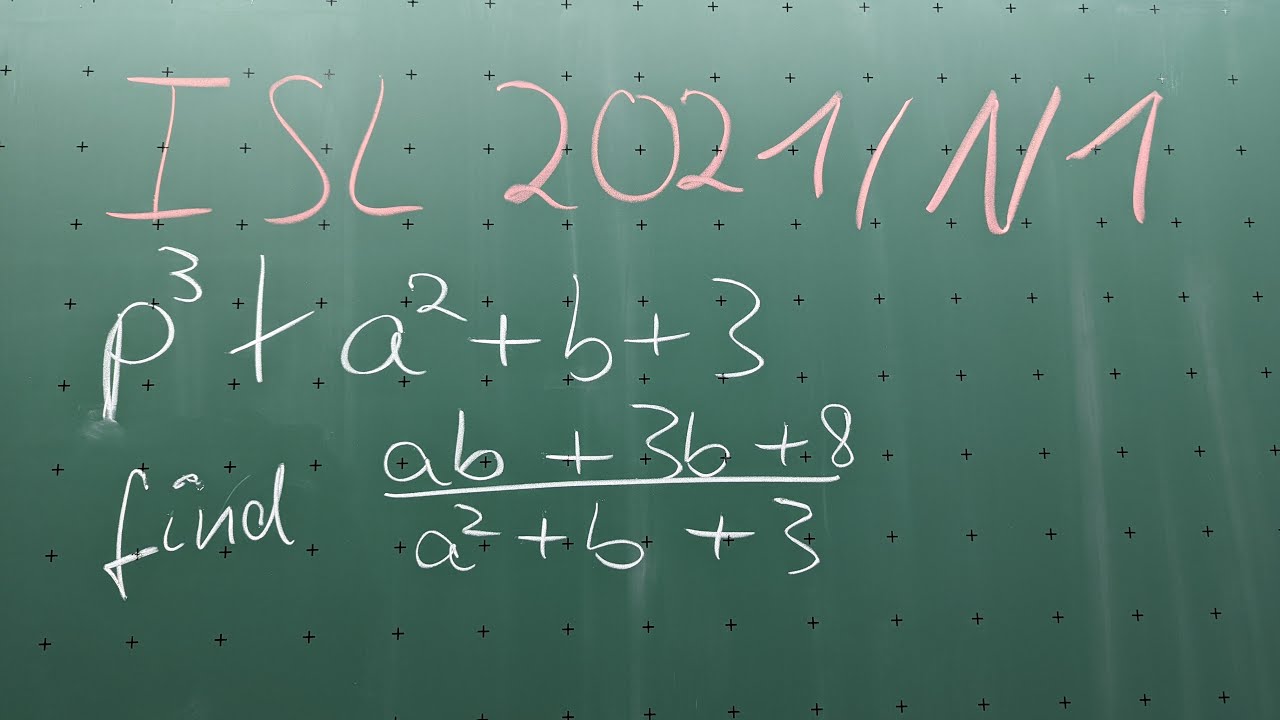 ISL 2021/N1
p³ ∤ a² + b + 3
find (ab + 3b + 8)/(a² + b + 3)